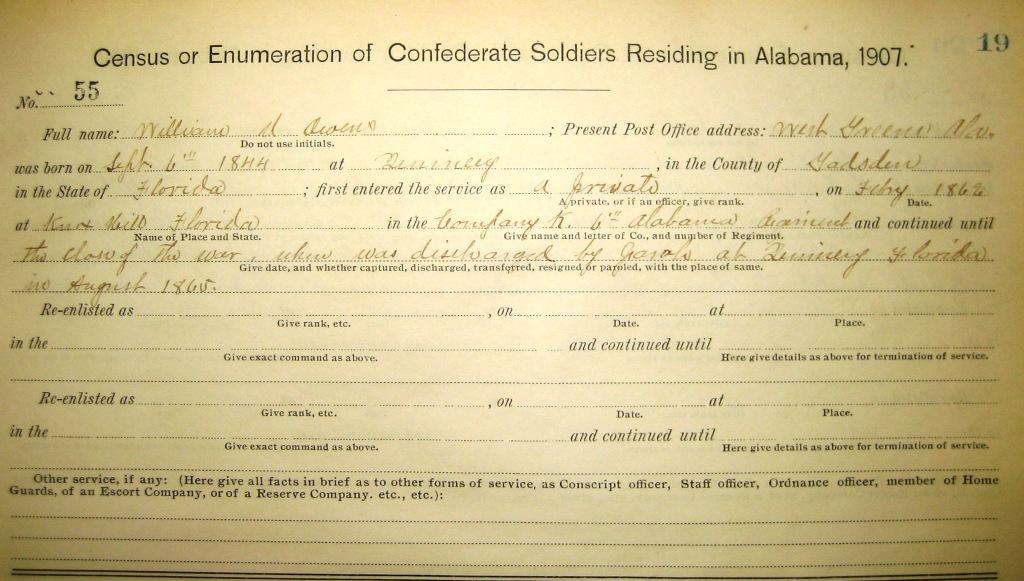 19
Census or Enumeration of Confederate Soldiers Residing in Alabama, 1907.
No. 55
Full name: William H Owens ; Present Post Office address: West Greene Ala.
Do not use initials.
was born on Sept. 6th 1844 at Quincey , in the County of Gadsden
in the State of Florida ; first entered the service as a private , on Feby 1862
A private, or if an officer, give rank. Date.
at Knox Hill Florida in the Company K. 6th Alabama Regiment and continued until
Name of Place and State. Give name and letter of Co., and number of Regiment.
the close of the war, when was discharged by Parole at Quincey Florida
Give date, and whether captured, discharged, transferred, resigned or paroled, with the place of same.
in August 1865.
Re-enlisted as , on at
Give rank, etc. Date. Place.
in the and continued until
Give exact command as above. Here give details as above for termination of service.
Re-enlisted as , on at
Give rank, etc. Date. Place.
in the and continued until
Give exact command as above. Here give details as above for termination of service.
Other service, if any: (Here give all facts in brief as to other forms of service, as Conscript officer, Staff officer, Ordnance officer, member of Home
Guards, of an Escort Company, or of a Reserve Company. etc., etc.):